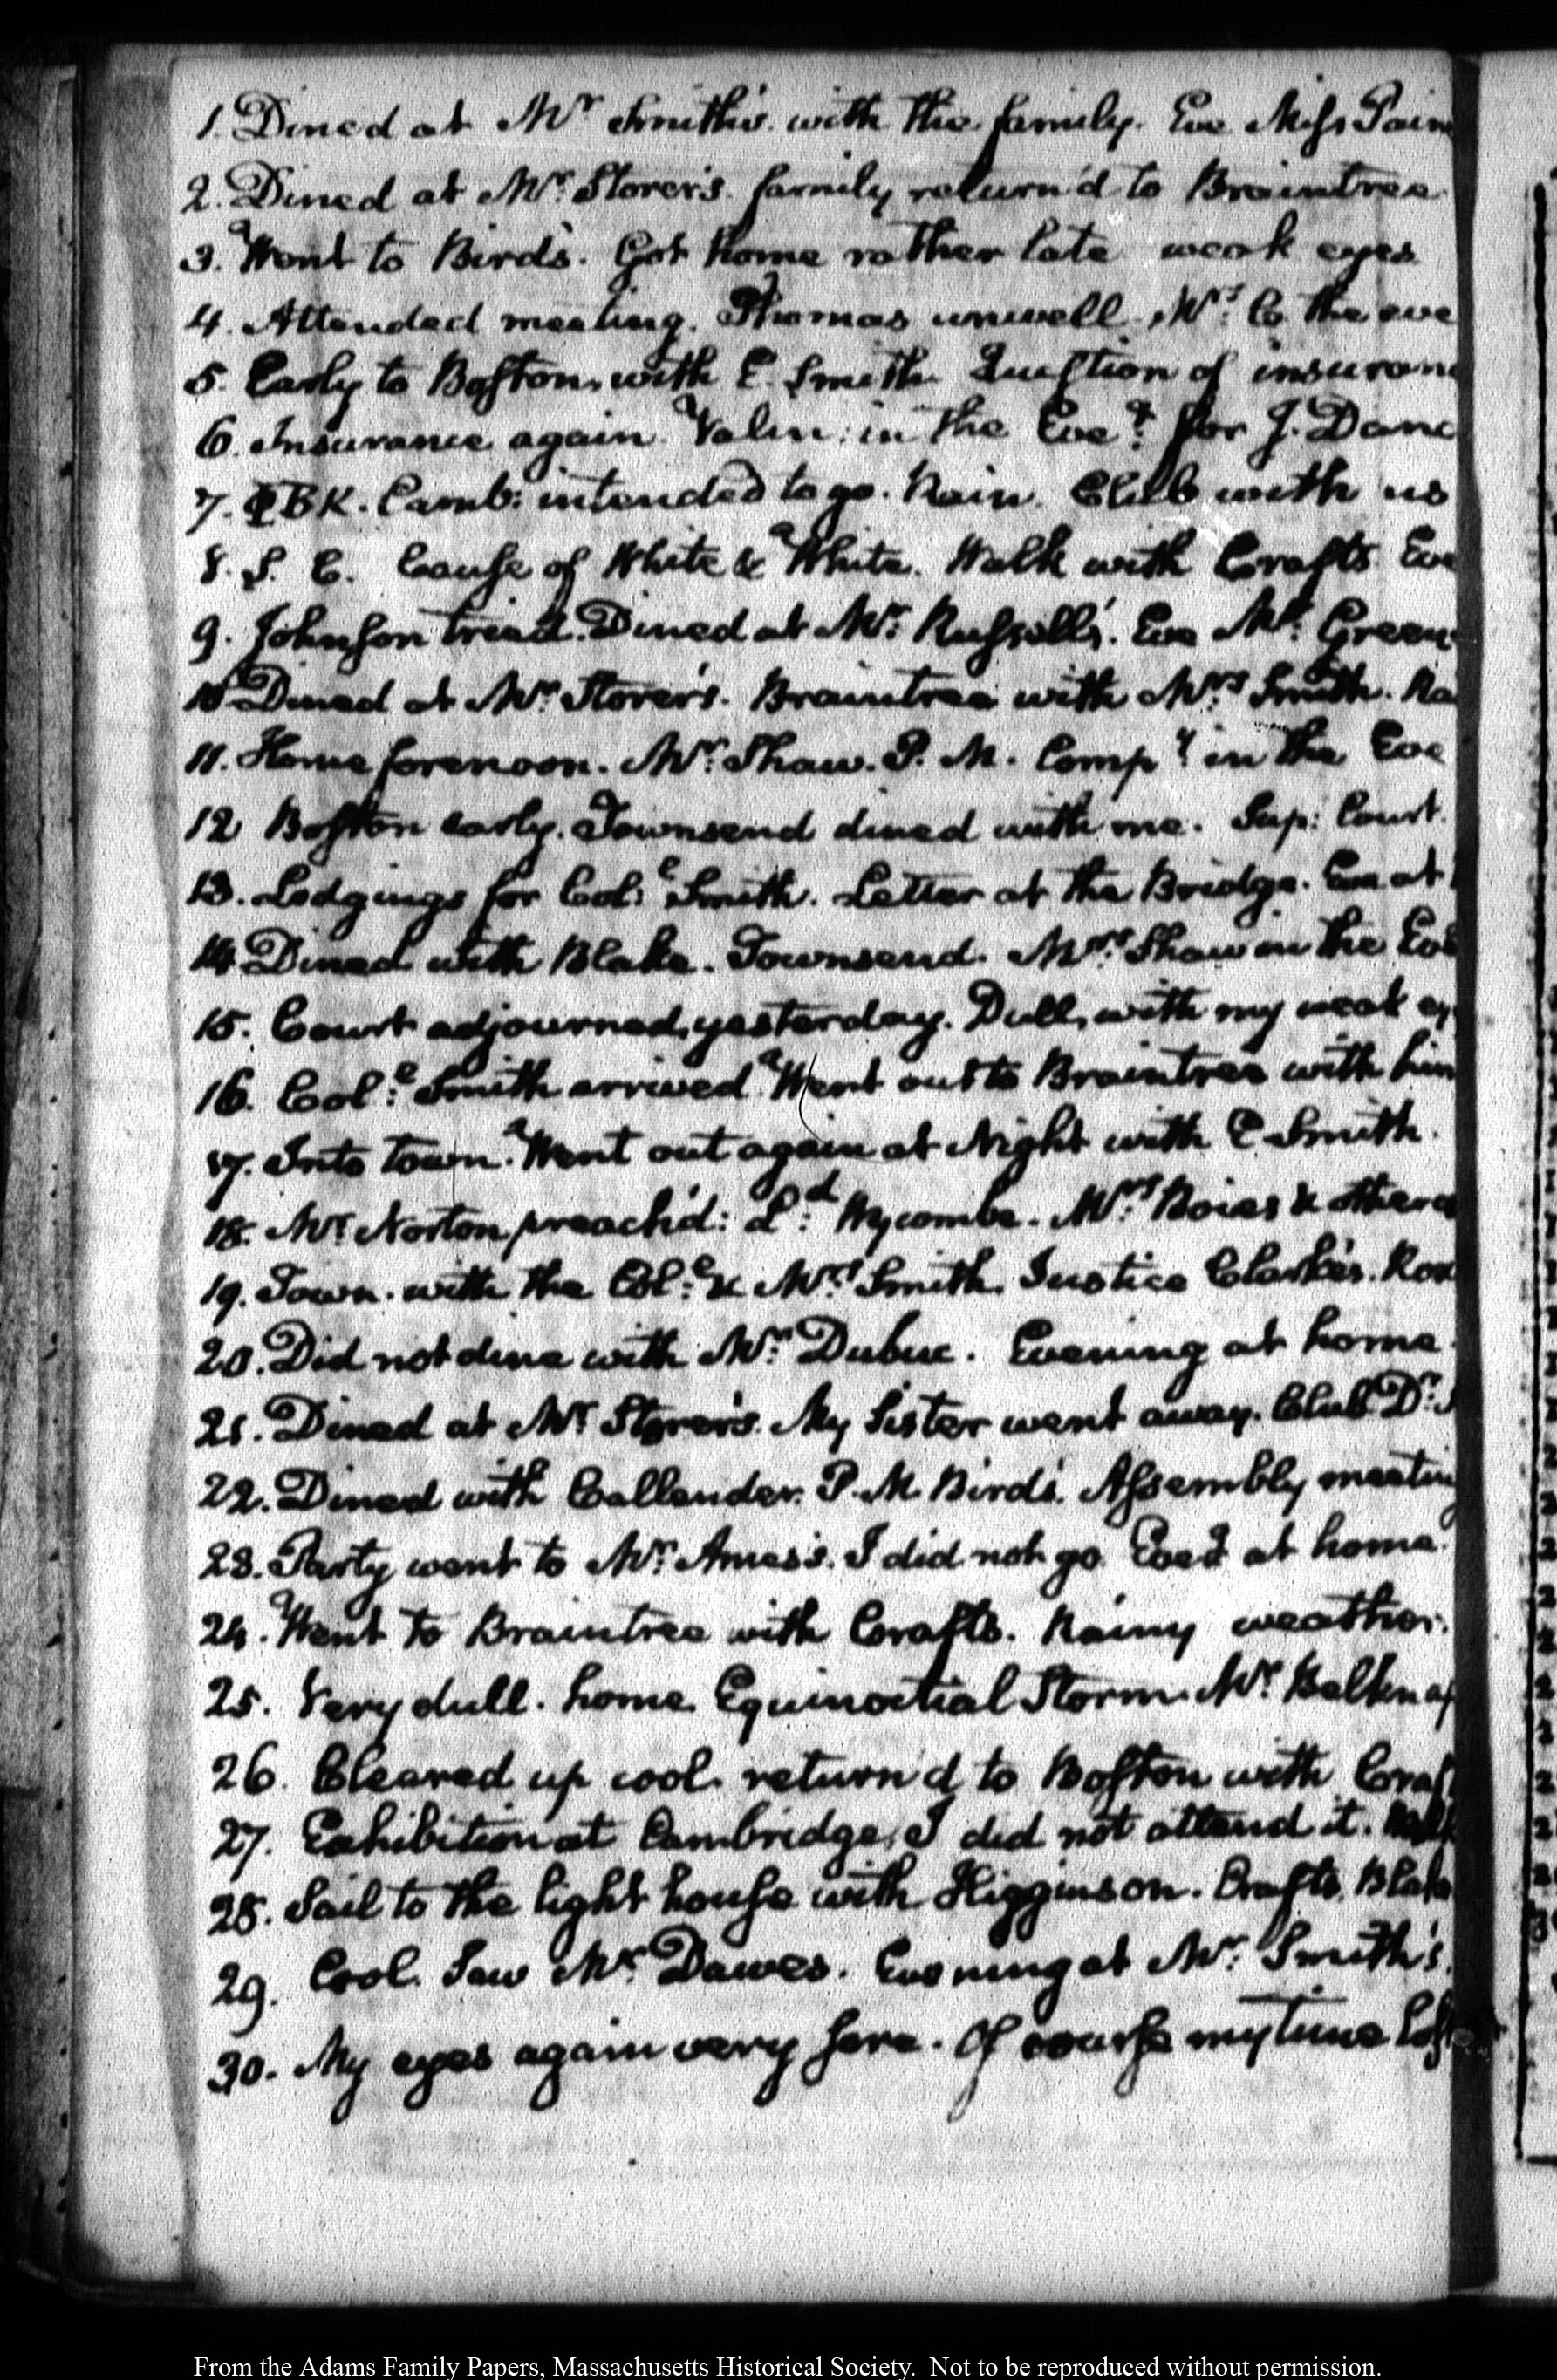 1. Dined at Mr Smith's. with the family. Eve Miss Pain
2. Dined at Mr. Storer's. family return'd to Braintree
3. Went to Bird's. Got home rather late weak eyes
4. Attended meeting. Thomas unwell. Mrs. C. the eve
5. Early to Boston, with E. Smith. Question of insuran
6. Insurance again. Valen: in the Eveg. for J. Danc
7. ΦBK. Camb: intended to go. Rain. Club with us
8. S. C. Cause of White & White. Walk with Crafts Eve
9. Johnson tried. Dined at Mr. Russell's. Eve Mr. Green
10 Dined at Mr. Storer's. Braintree with Mrs. Smith. Ra
11. Home forenoon. Mr. Shaw. P. M. Compy. in the Eve
12 Boston early. Townsend dined with me. Sup: Court.
13. Lodgings for Col: Smith. Letter at the Bridge. Eve at
14 Dined with Blake. Townsend. Mrs. Shaw in the Eve
15. Court adjourned, yesterday. Dull, with my weak ey
16. Cole. Smith arrived Went out to Braintree with him
17. Into town. Went out again at Night with E Smith.
18. Mr. Norton preach'd: Ld. Wycombe. Mrs. Boies & others
19. Town. with the Cole. & Mrs. Smith. Justice Clarke's. Rox
20. Did not dine with Mr. Dubuc. Evening at home.
21. Dined at Mr. Storer's. My Sister went away. Club Dr.
22. Dined with Callender. P. M. Bird's. Assembly meetin
23. Party went to Mr. Ames's. I did not go Eveg. at home.
24. Went to Braintree with Crafts. Rainy weather.
25. Very dull. home Equinoctial Storm. Mr. Belknap
26. Cleared up cool. return'd to Boston with Craf
27. Exhibition at Cambridge, I did not attend it.
28. Sail to the light house with Higginson. Crafts. Blake
29. Cool. Saw Mr. Dawes. Evening at Mr. Smith's.
30. My eyes again very sore. Of course my time lost
From the Adams Family Papers, Massachusetts Historical Society. Not to be reproduced without permission.